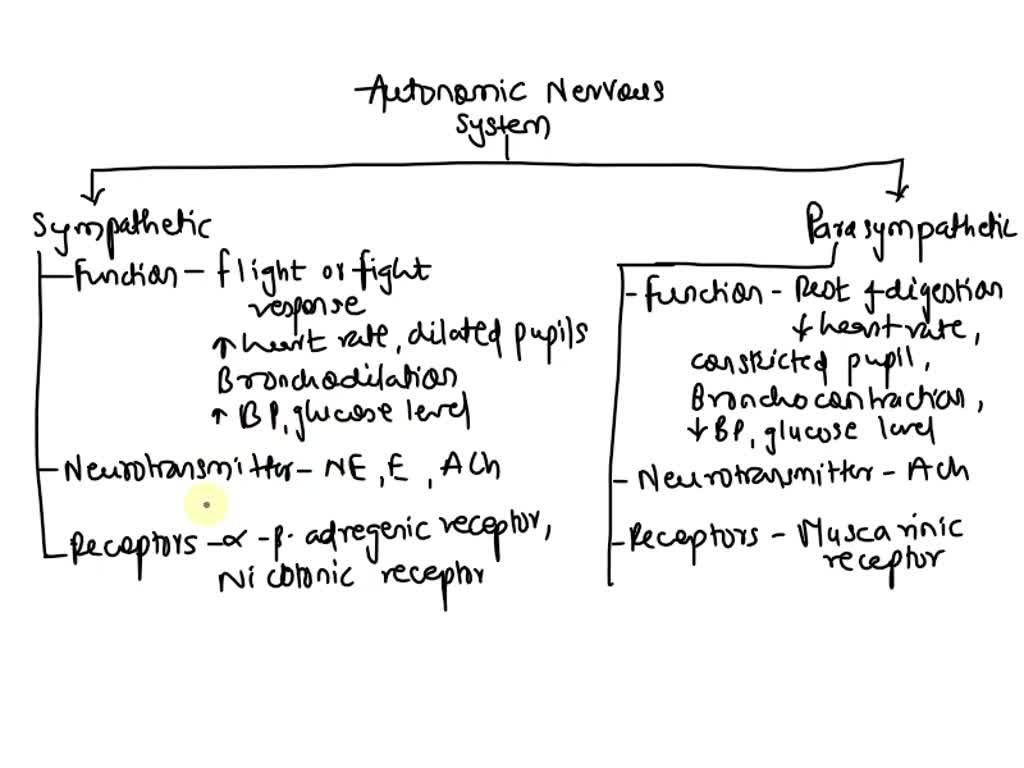 Autonomic Nervous
System
Sympathetic
Function - flight or fight
response
↑ heart rate, dilated pupils
Bronchodilation
↑ BP, glucose level
Neurotransmitter - NE, E, ACh
Receptors - α - β. adregenic receptor,
Nicotonic receptor
Parasympathetic
- function - Rest & digestion
↓ heart rate,
constricted pupil,
Bronchocontraction,
↓ BP, glucose level
- Neurotransmitter - Ach
- Receptors - Muscarinic
receptor